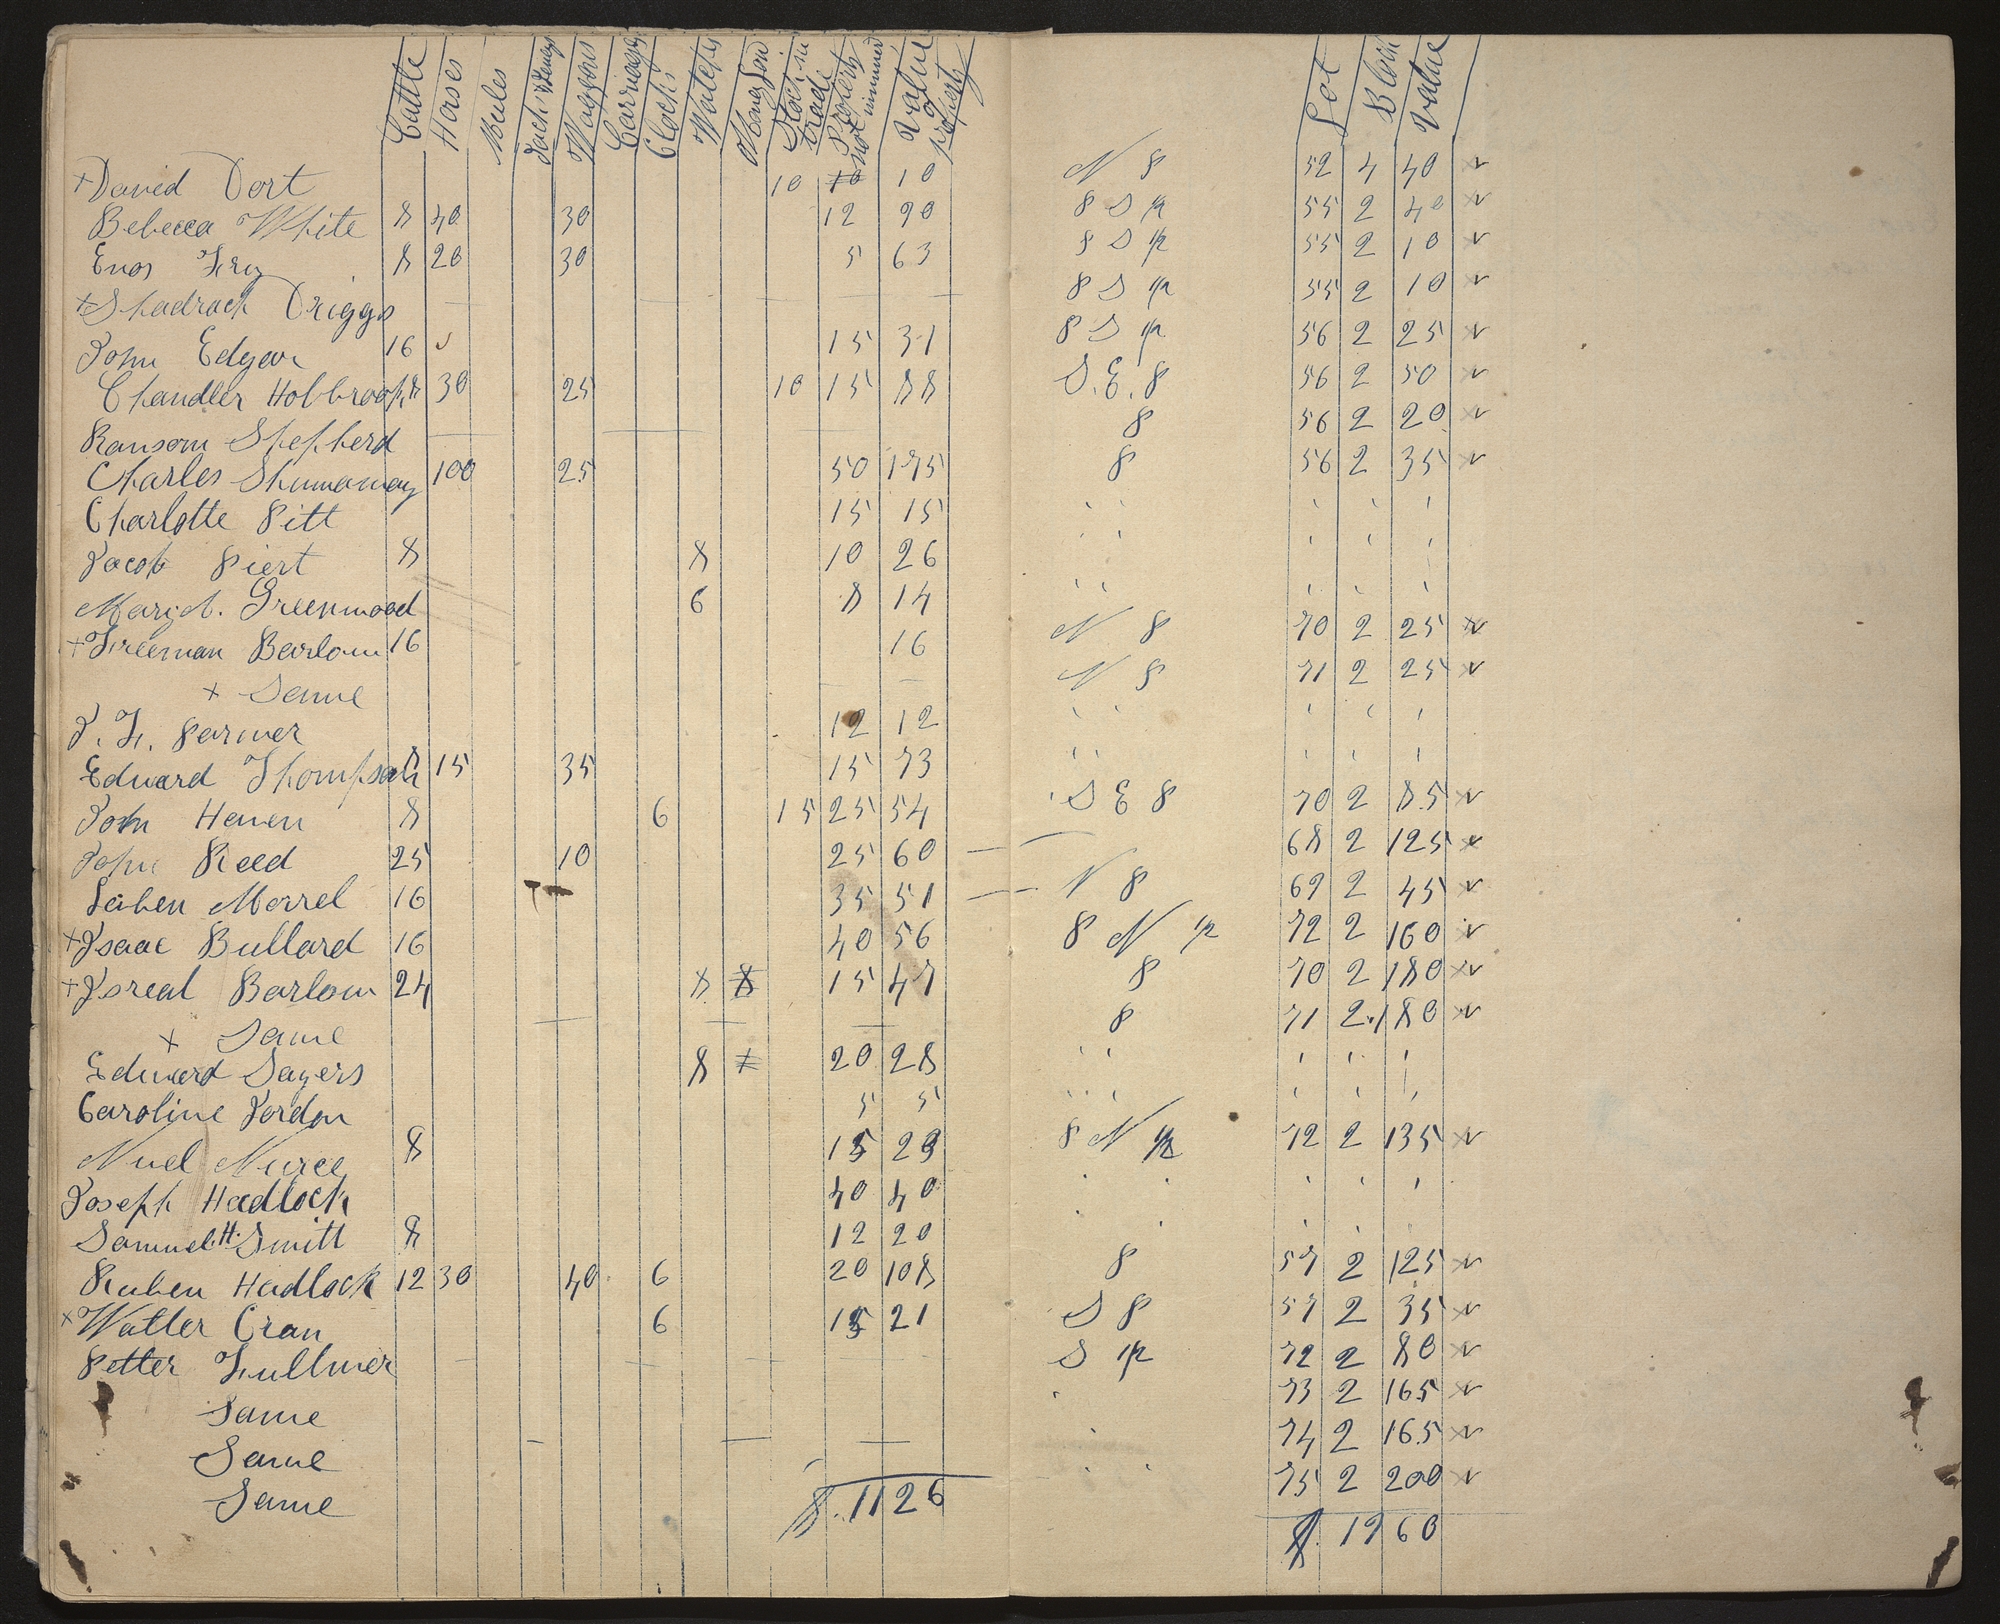 Cattle Horses Mules Jack & Jenys Waggons Carriages Clocks Watches Money Loned Stock in trade Proierty not nummed Value of property Lot Block Value
+ David Dort 10 10 10 N 8 52 4 40
Bebecca White 8 40 30 12 90 8 S 1/2 55 2 40
Enos Fry 8 20 30 5 63 8 S 1/2 55 2 10
+ Shadrach Driggs 8 S 1/2 55 2 10
John Edgar 16 15 31 8 S 1/2 56 2 25
Chandler Holbrook 8 30 25 10 15 88 S.E. 8 56 2 50
Ransom Shepherd 8 56 2 20
Charles Shumaway 100 25 50 175 8 56 2 35
Charlotte Pitt 15 15
Jacob Piert 8 8 10 26
Mariah. Greenwood 6 8 14
+ Freeman Barlow 16 16 N 8 70 2 25
+ Same N 8 71 2 25
J. F. Parmer 12 12
Edward Thompson 8 15 35 15 73
John Haven 8 6 15 25 54 S E 8 70 2 85
John Reed 25 10 25 60 68 2 125
Laben Morrel 16 35 51 N 8 69 2 45
+ Isaac Bullard 16 40 56 8 N 1/2 72 2 160
+ Isreal Barlow 24 8 8 15 47 8 70 2 180
+ Same 8 71 2 180
Edward Sayers 8 20 28
Caroline Jordon 5 5
Nuel Nurce 8 15 23 8 N 1/2 72 2 135
Joseph Hadlock 40 40
Samuel H. Smitt 8 12 20
Ruben Hadlock 12 30 40 6 20 108 8 57 2 125
+ Watler Cran 6 15 21 S 8 57 2 35
Petter Fullmer S 1/2 72 2 80
Same 73 2 165
Same 74 2 165
Same 75 2 200
$. 1126 $. 1960